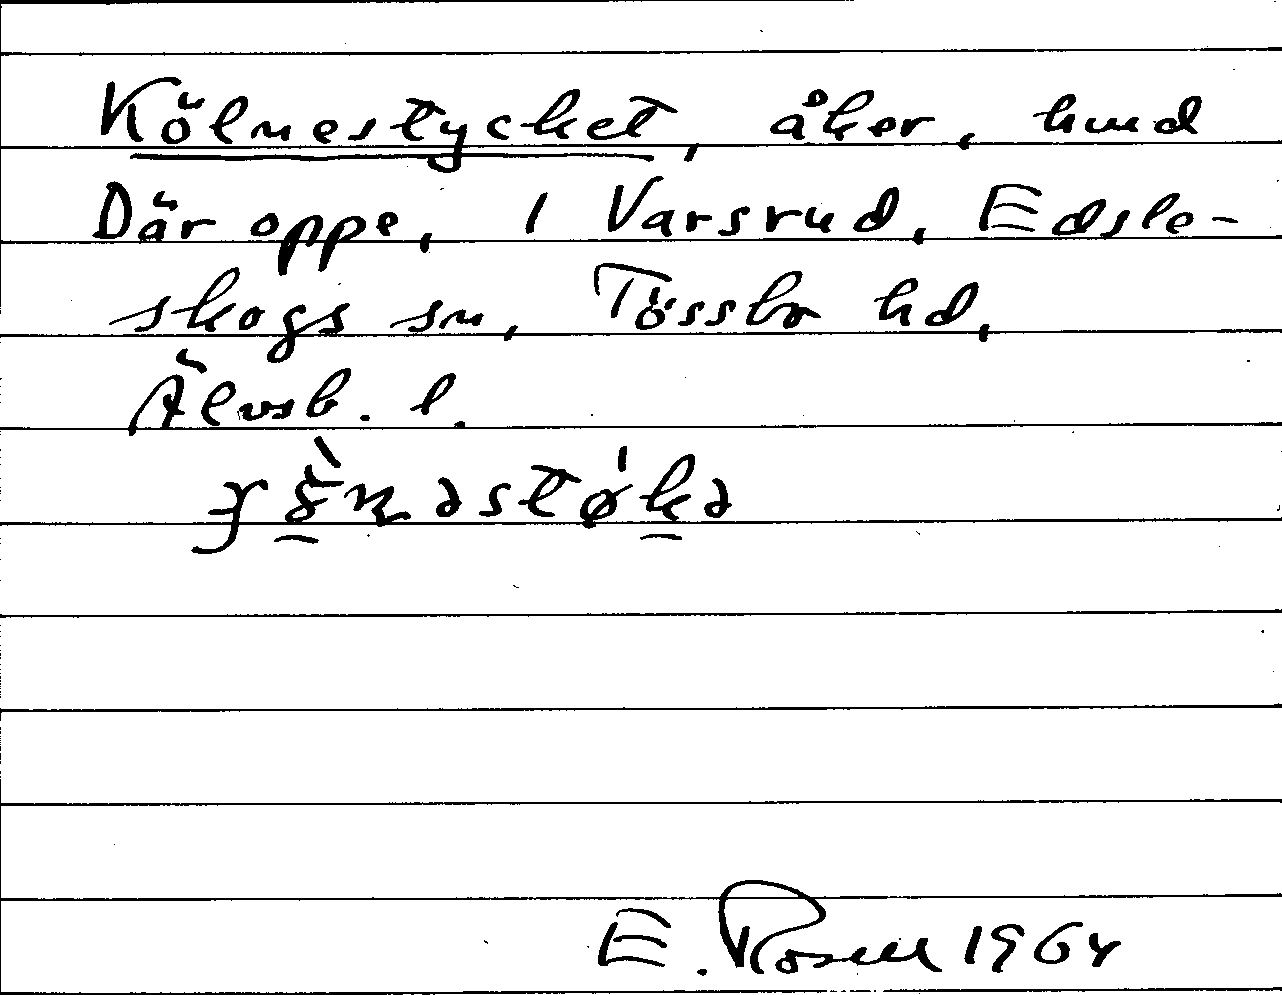 Kölnestycket, åker, hmd
Där oppe, 1 Varsrud, Edsle-
skogs sn, Tössbo hd,
Älvsb. l.
E. Rosell 1964